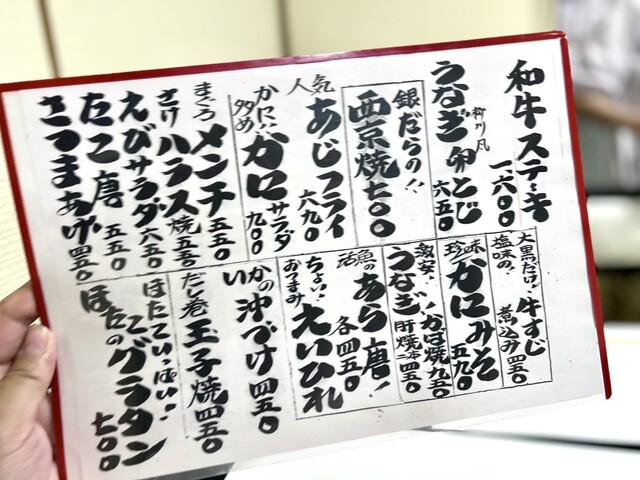 和牛ステーキ 一六〇〇
柳川風
うなぎ卵とじ 六五〇
銀だらの!!
西京焼 七〇〇
人気
あじフライ 六九〇
かにが多め
かにサラダ 九〇〇
まぐろ
メンチ 五五〇
さけハラス焼 五五〇
えびサラダ 六五〇
たこ唐 五五〇
さつまあげ 四五〇
大黒だけ!
塩味の、
牛すじ煮込み 四五〇
珍味
かにみそ 五九〇
激安!
うなぎ
かば焼 九五〇
肝焼 二本 四五〇
活魚の
あら唐! 各四五〇
ちょい!
おつまみ
えいひれ
いかの沖づけ 四五〇
だし巻
玉子焼 四五〇
ほたていっぱい!
ほたてのグラタン 七〇〇